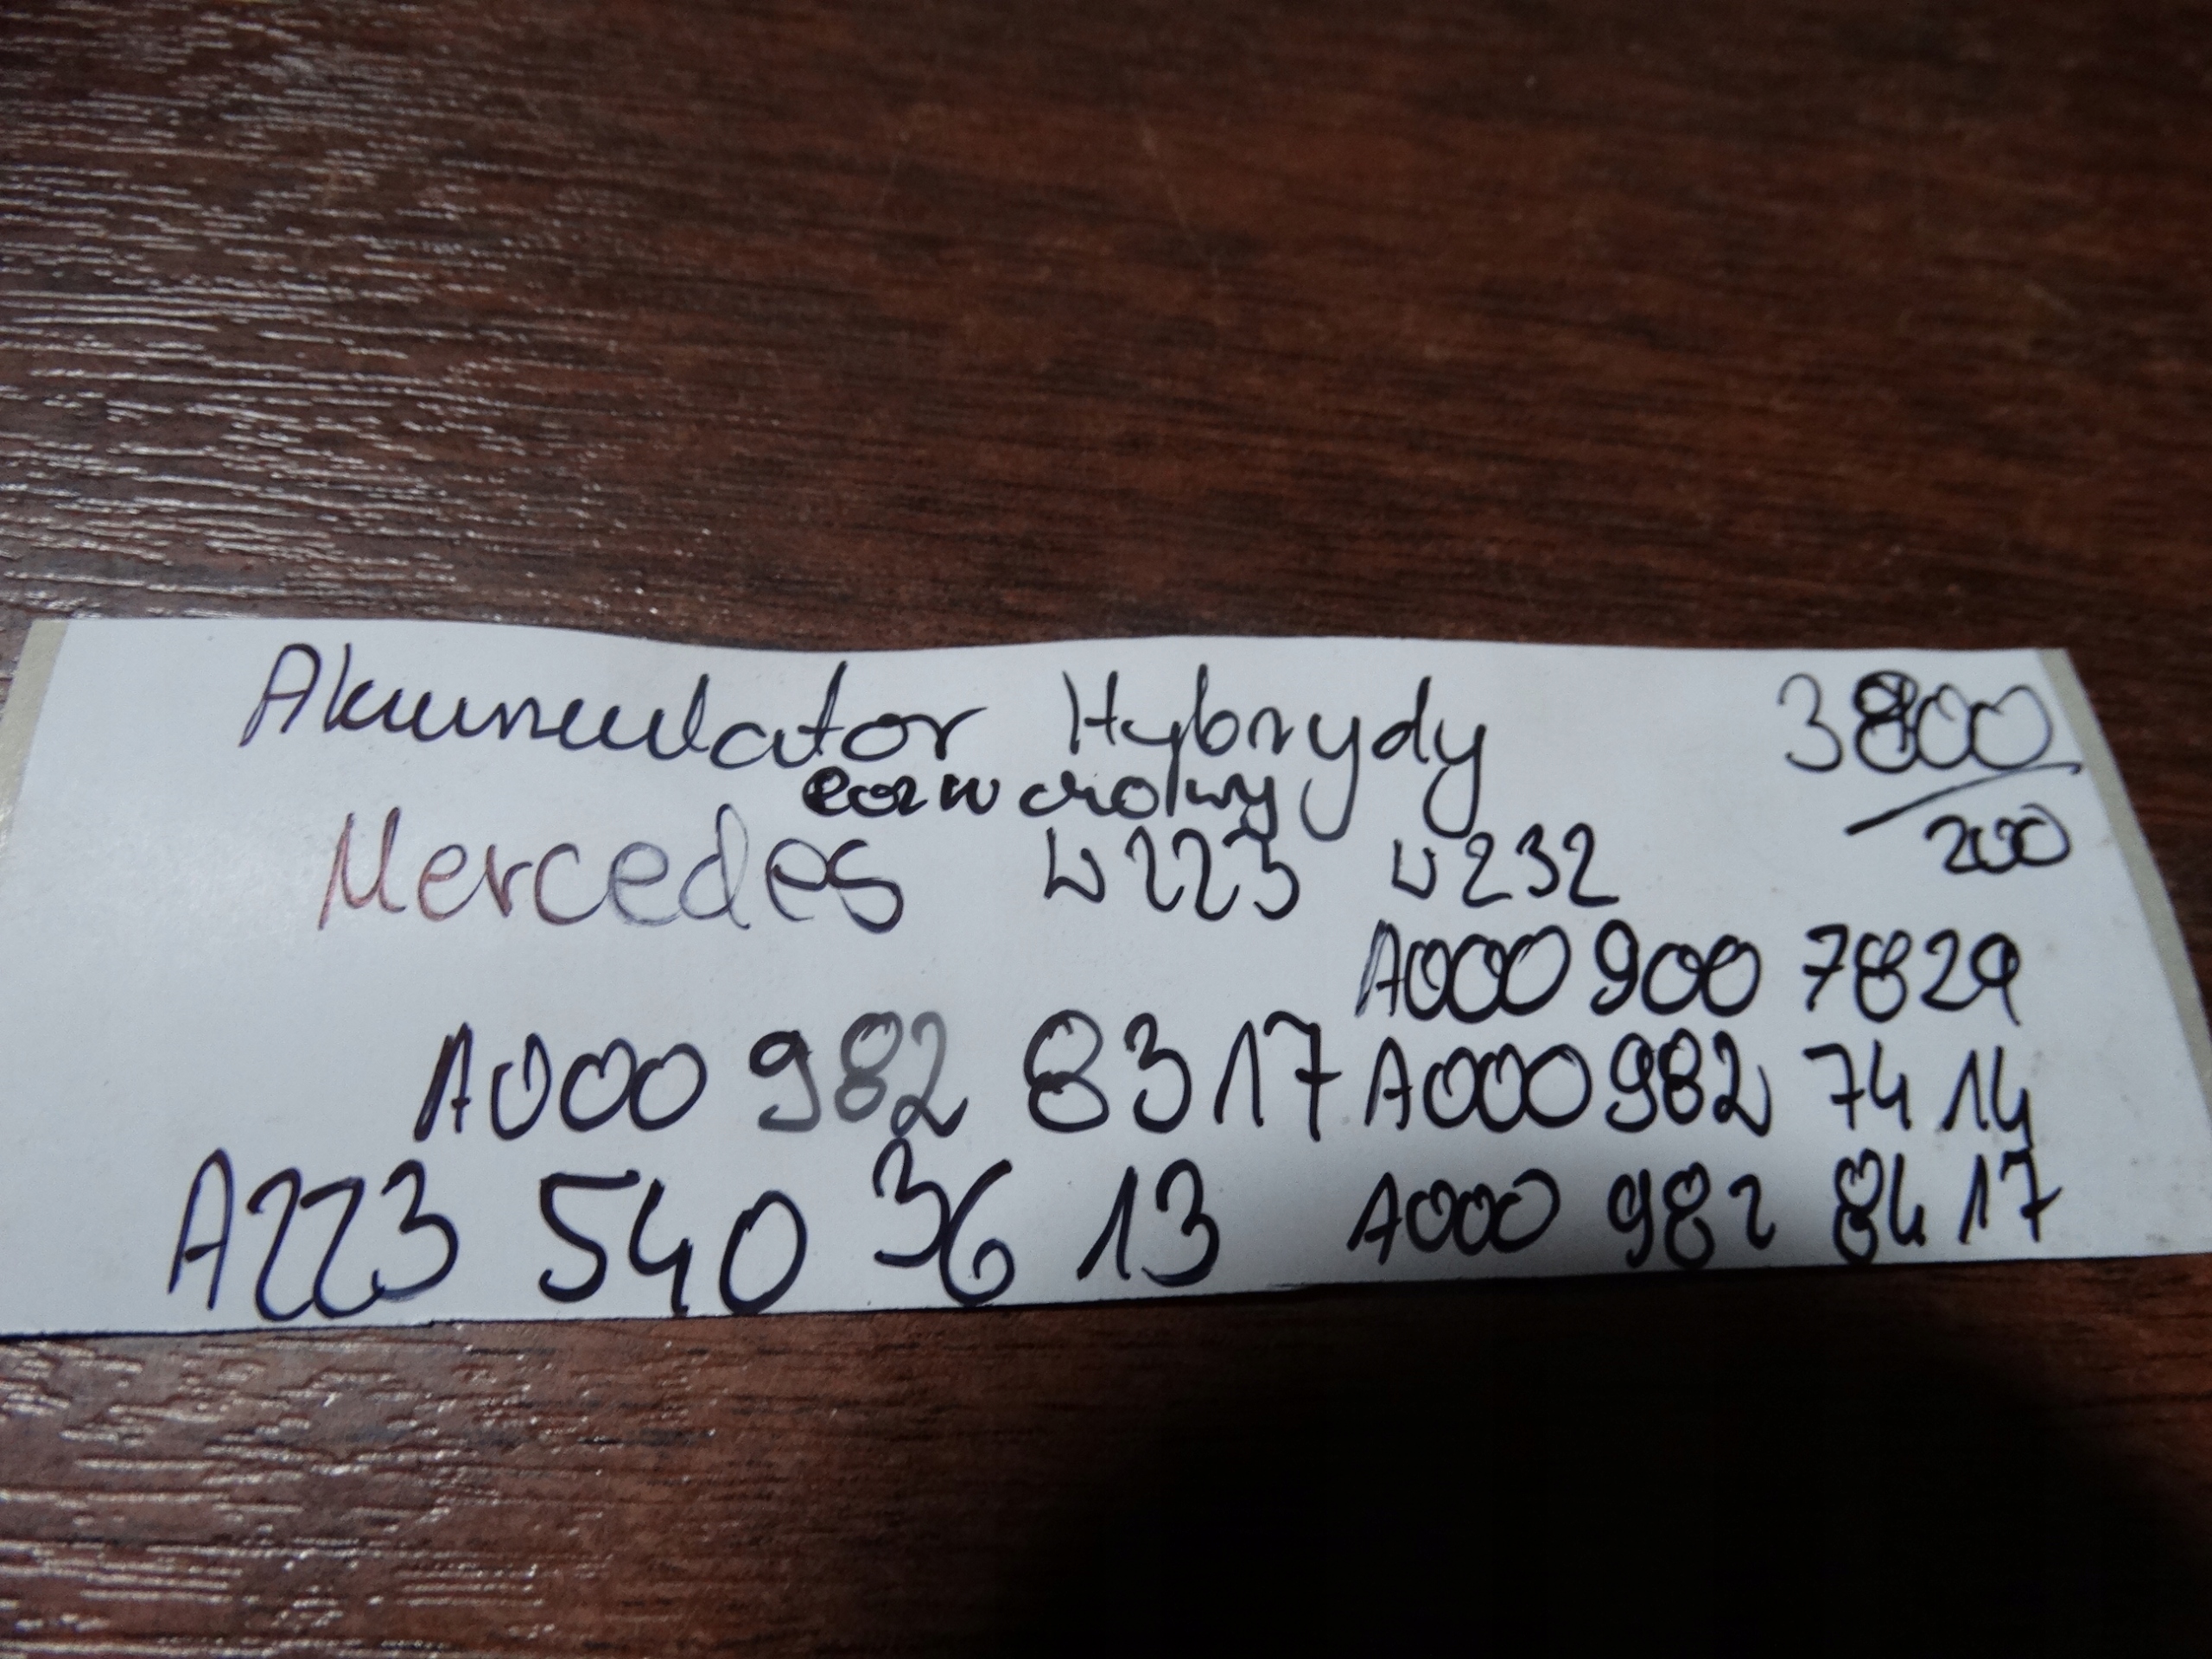 Akumulator Hybrydy 3800
200
Mercedes W223 W232
A000 900 7829
A000 982 8317 A000 982 74 14
A223 540 36 13 A000 982 84 17